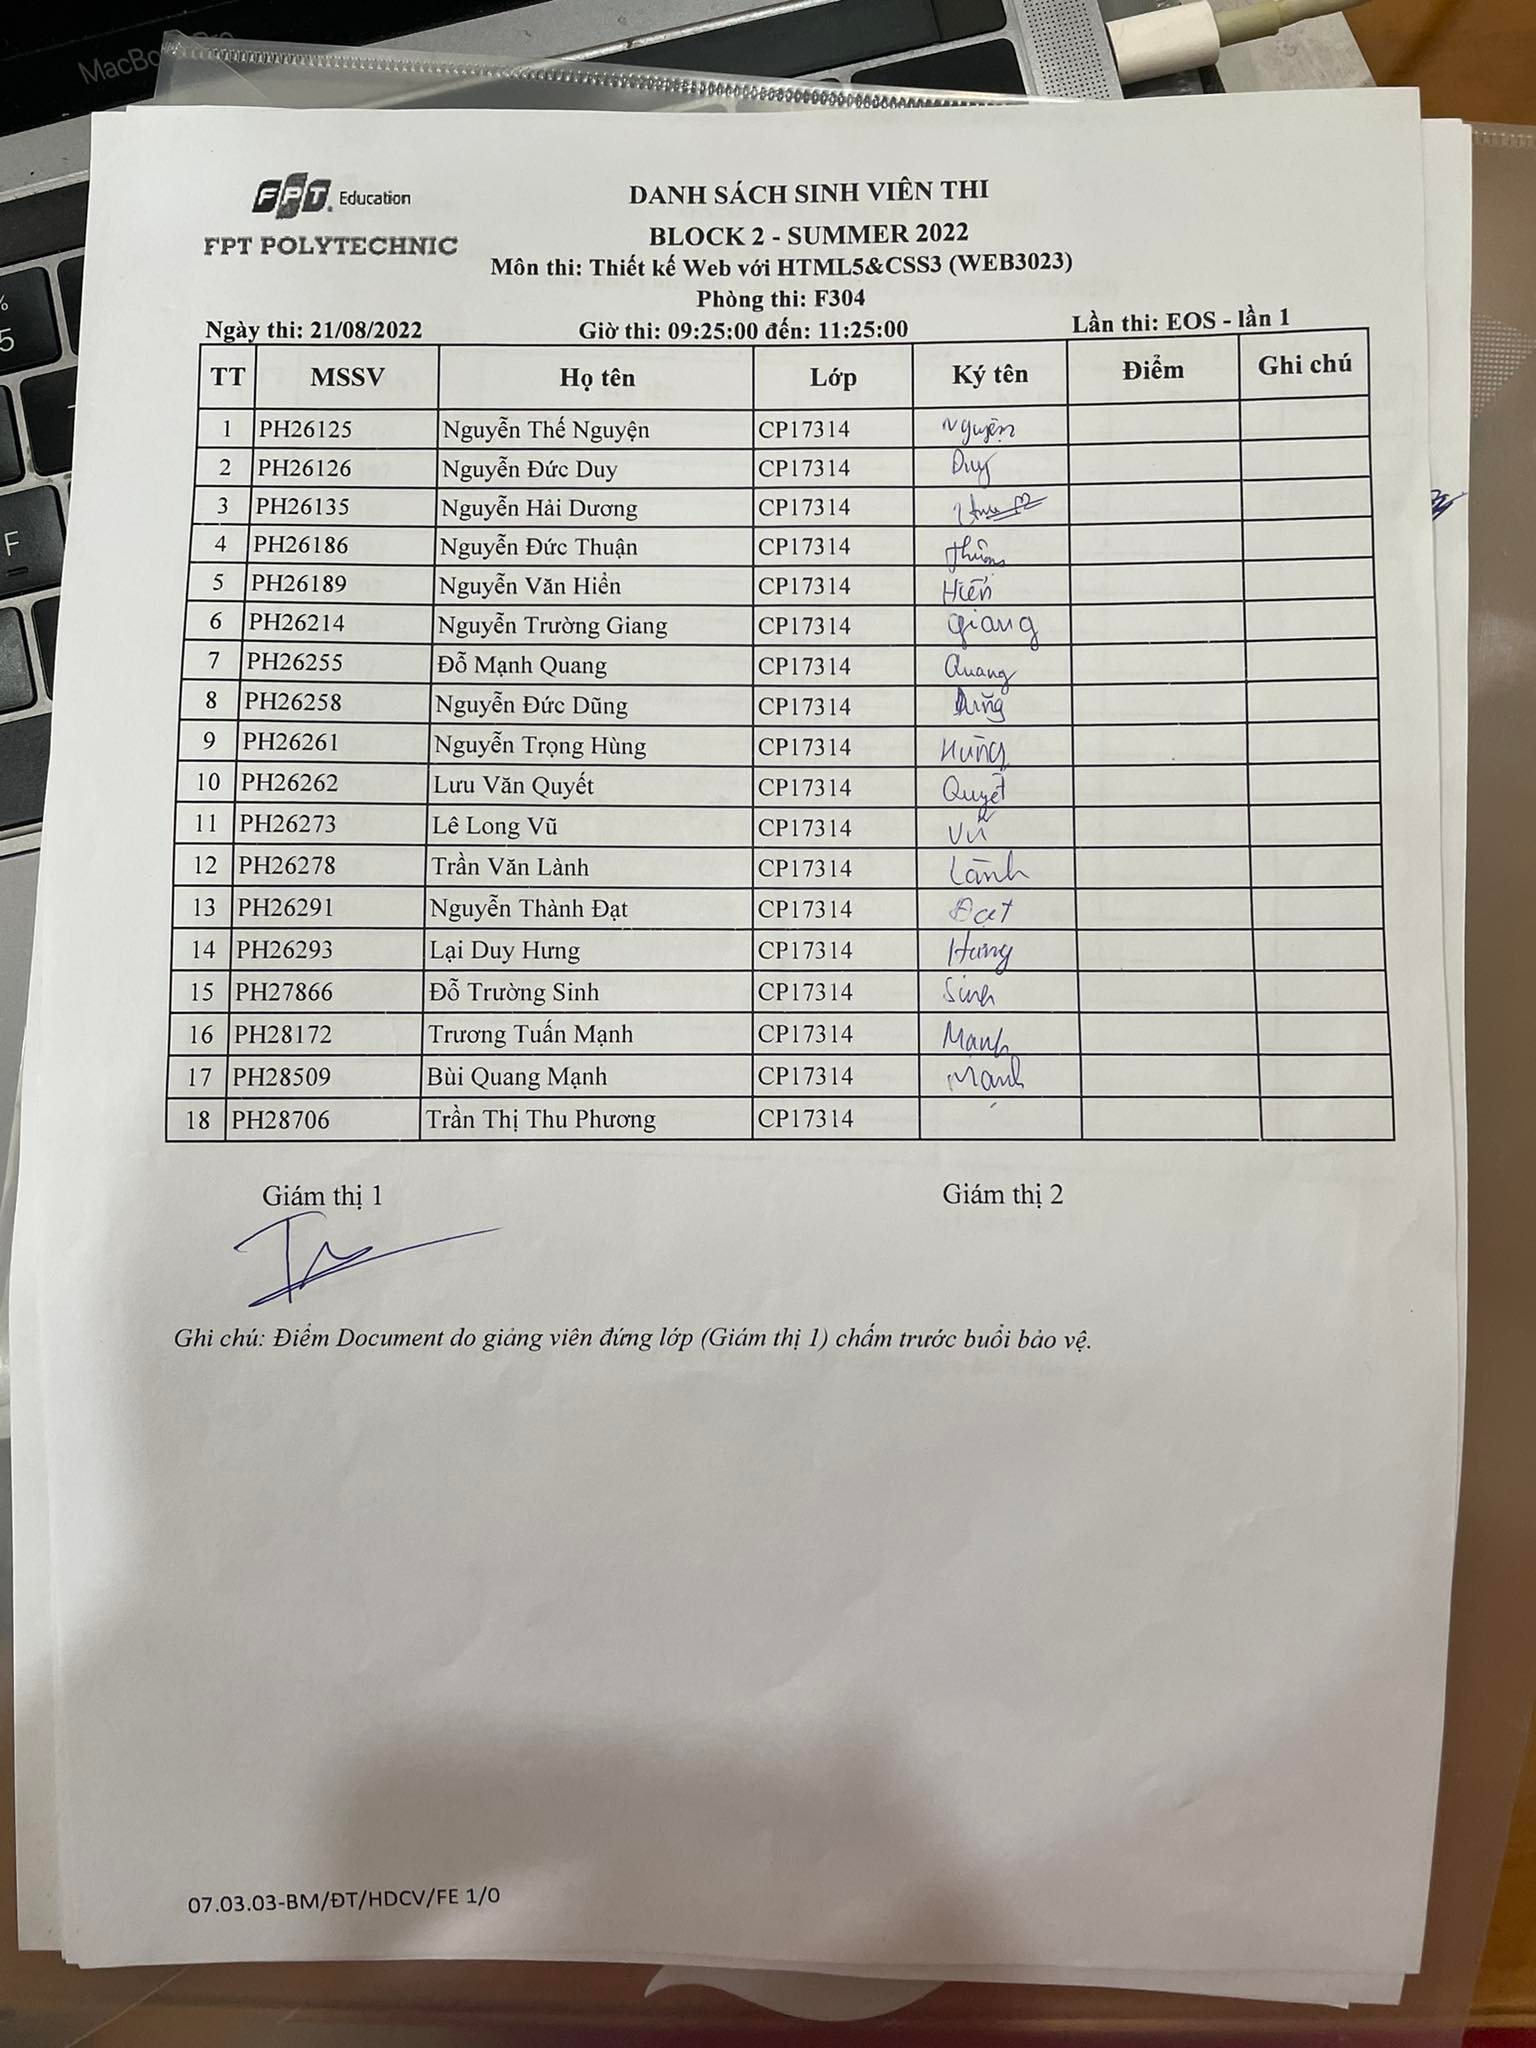 MacBook Pro
FPT Education
FPT POLYTECHNIC
DANH SÁCH SINH VIÊN THI
BLOCK 2 - SUMMER 2022
Môn thi: Thiết kế Web với HTML5&CSS3 (WEB3023)
Phòng thi: F304
Ngày thi: 21/08/2022 Giờ thi: 09:25:00 đến: 11:25:00 Lần thi: EOS - lần 1
TT MSSV Họ tên Lớp Ký tên Điểm Ghi chú
1 PH26125 Nguyễn Thế Nguyện CP17314 Nguyện
2 PH26126 Nguyễn Đức Duy CP17314 Duy
3 PH26135 Nguyễn Hải Dương CP17314
4 PH26186 Nguyễn Đức Thuận CP17314
5 PH26189 Nguyễn Văn Hiển CP17314 Hiển
6 PH26214 Nguyễn Trường Giang CP17314 Giang
7 PH26255 Đỗ Mạnh Quang CP17314 Quang
8 PH26258 Nguyễn Đức Dũng CP17314 Dũng
9 PH26261 Nguyễn Trọng Hùng CP17314 Hùng
10 PH26262 Lưu Văn Quyết CP17314 Quyết
11 PH26273 Lê Long Vũ CP17314 Vũ
12 PH26278 Trần Văn Lành CP17314 Lành
13 PH26291 Nguyễn Thành Đạt CP17314 Đạt
14 PH26293 Lại Duy Hưng CP17314 Hưng
15 PH27866 Đỗ Trường Sinh CP17314 Sinh
16 PH28172 Trương Tuấn Mạnh CP17314 Mạnh
17 PH28509 Bùi Quang Mạnh CP17314 Mạnh
18 PH28706 Trần Thị Thu Phương CP17314
Giám thị 1 Giám thị 2
Ghi chú: Điểm Document do giảng viên đứng lớp (Giám thị 1) chấm trước buổi bảo vệ.
07.03.03-BM/ĐT/HDCV/FE 1/0
%
5
F